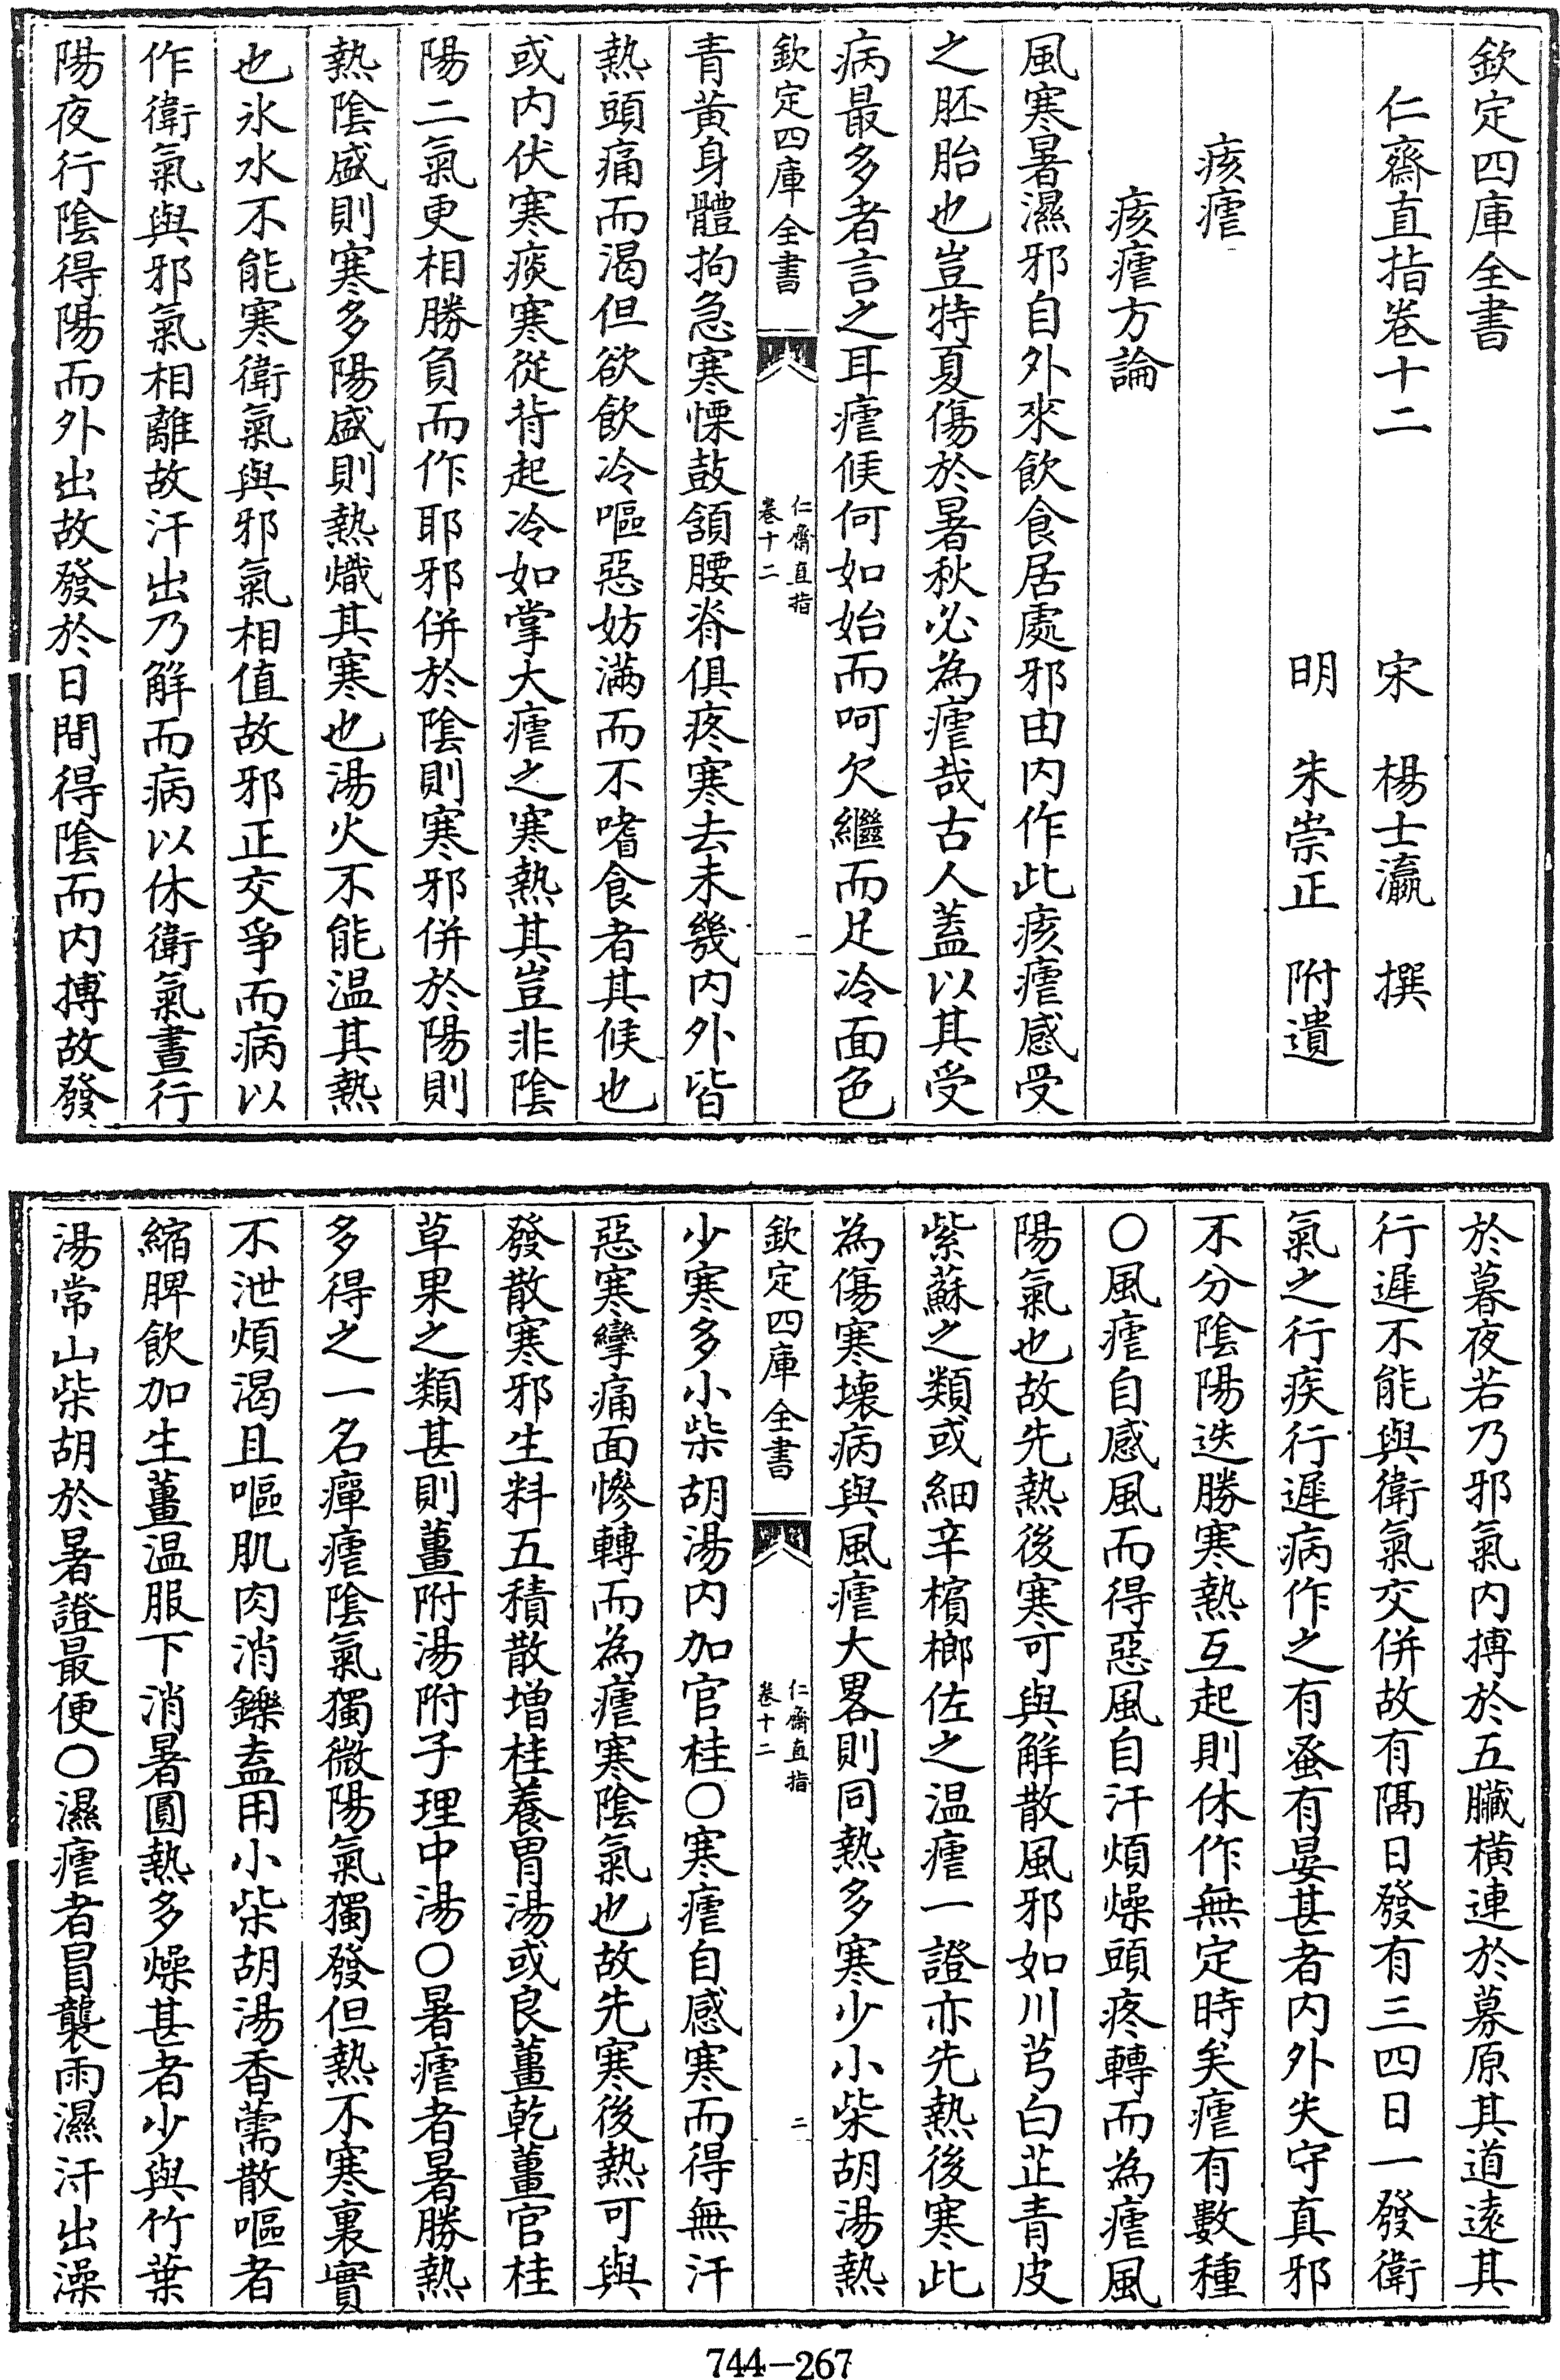 欽定四庫全書
仁齋直指卷十二
宋　楊士瀛　撰
明　朱崇正　附遺
痎瘧
痎瘧方論
風寒暑濕邪自外來飲食居處邪由内作此痎瘧感受
之胚胎也豈特夏傷於暑秋必為瘧哉古人蓋以其受
病最多者言之耳瘧候何如始而呵欠繼而足冷面色
欽定四庫全書
仁齋直指
卷十二
一
青黄身體拘急寒慄鼓頷腰脊俱疼寒去未幾内外皆
熱頭痛而渴但欲飲冷嘔惡妨滿而不嗜食者其候也
或内伏寒痰寒從背起冷如掌大瘧之寒熱其豈非陰
陽二氣更相勝負而作耶邪併於陰則寒邪併於陽則
熱陰盛則寒多陽盛則熱熾其寒也湯火不能温其熱
也氷水不能寒衛氣與邪氣相值故邪正交爭而病以
作衛氣與邪氣相離故汗出乃解而病以休衛氣晝行
陽夜行陰得陽而外出故發於日間得陰而内搏故發
於暮夜若乃邪氣内搏於五臟橫連於募原其道遠其
行遲不能與衛氣交併故有隔日發有三四日一發衛
氣之行疾行遲病作之有蚤有晏甚者内外失守真邪
不分陰陽迭勝寒熱互起則休作無定時矣瘧有數種
○風瘧自感風而得惡風自汗煩燥頭疼轉而為瘧風
陽氣也故先熱後寒可與解散風邪如川芎白芷青皮
紫蘇之類或細辛檳榔佐之温瘧一證亦先熱後寒此
為傷寒壞病與風瘧大畧則同熱多寒少小柴胡湯熱
欽定四庫全書
仁齋直指
卷十二
二
少寒多小柴胡湯内加官桂○寒瘧自感寒而得無汗
惡寒攣痛面慘轉而為瘧寒陰氣也故先寒後熱可與
發散寒邪生料五積散增桂養胃湯或良薑乾薑官桂
草果之類甚則薑附湯附子理中湯○暑瘧者暑勝熱
多得之一名癉瘧陰氣獨微陽氣獨發但熱不寒裏實
不泄煩渴且嘔肌肉消鑠盍用小柴胡湯香薷散嘔者
縮脾飲加生薑温服下消暑圓熱多燥甚者少與竹葉
湯常山柴胡於暑證最便○濕瘧者冒襲雨濕汗出澡
744-267